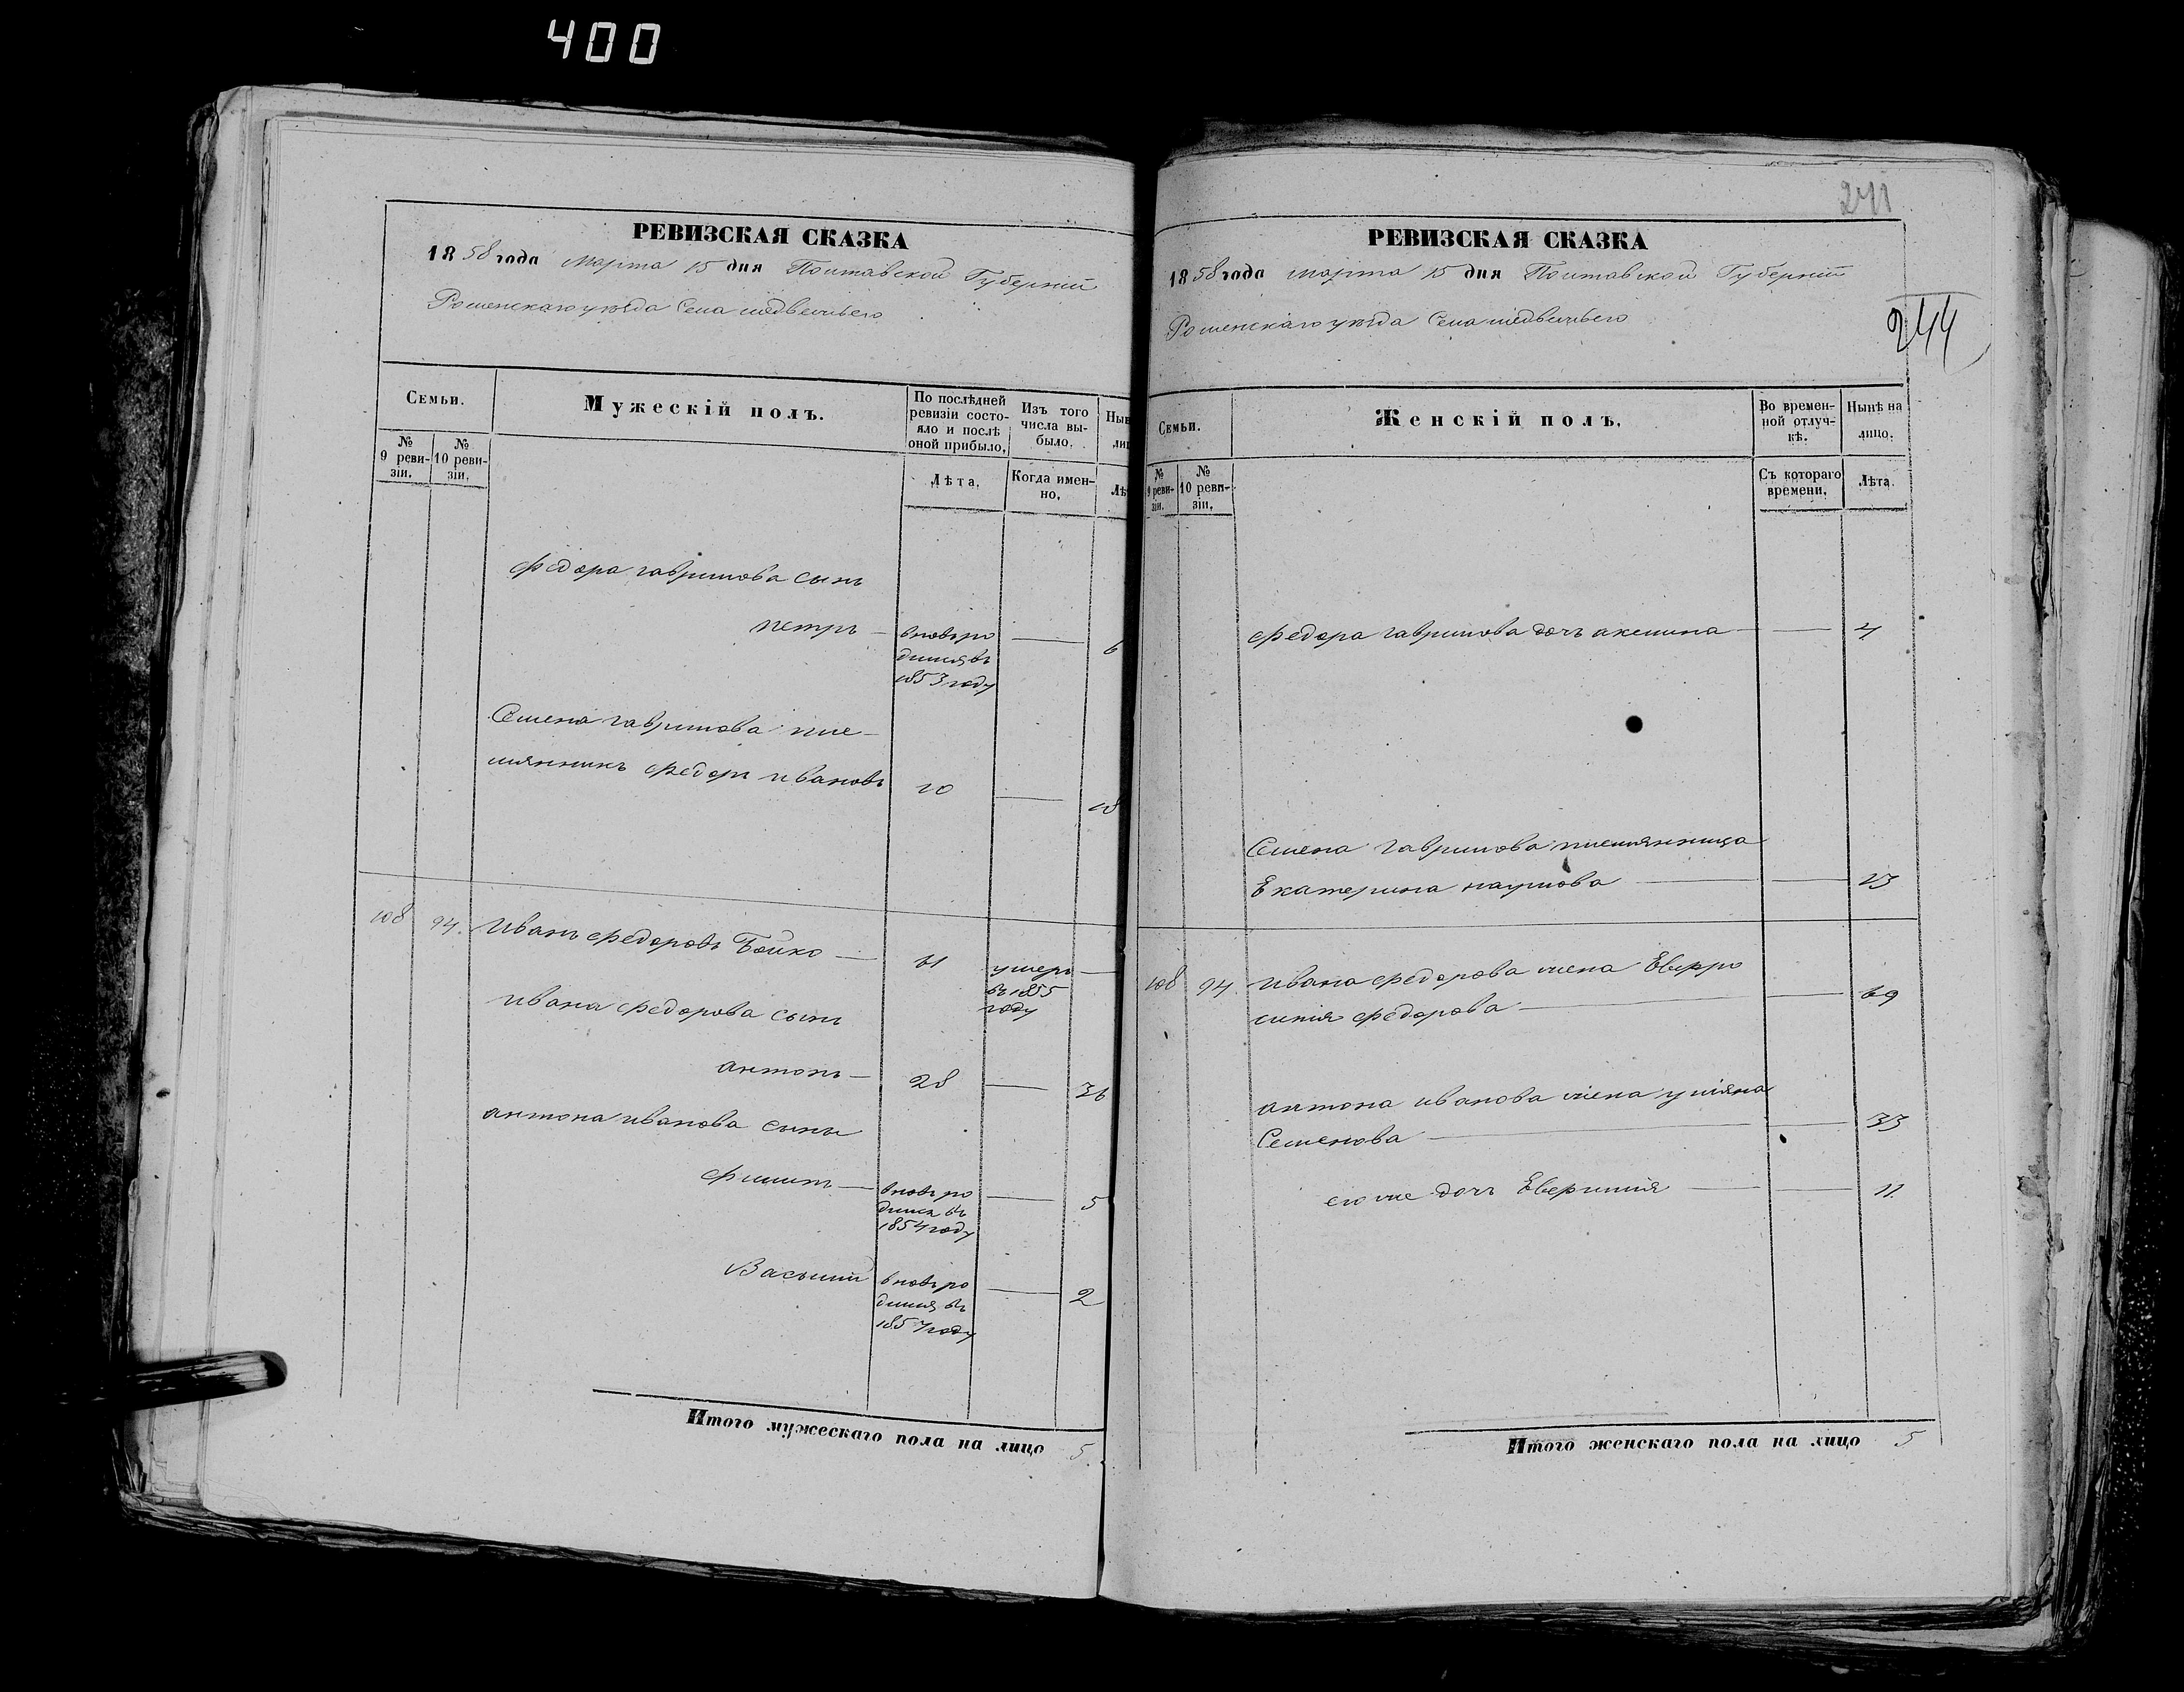 400
РЕВИЗСКАЯ СКАЗКА
1858 года Марта 15 дня Полтавской Губерніи
Роменскаго уѣзда Села медвежьего
Семьи.
Мужескій полъ.
По послѣдней ревизіи состояло и послѣ оной прибыло.
Изъ того числа выбыло.
№ 9 ревизіи.
№ 10 ревизіи.
Лѣта.
Когда именно.
Федора гаврилова сынъ
петръ — вновь родился въ 1853 году — 6
Семена гаврилова пле-
мянникъ Федоръ ивановъ 10 — 18
108 94. Иванъ Федоровъ Бойко — 61 умеръ в 1855 году —
ивана Федорова сынъ
антонъ — 28 — 36
антона иванова сыны
Филипъ — вновь родился въ 1854 году — 5
Василий вновь родился въ 1857 году — 2
Итого мужескаго пола на лицо 5.
241
РЕВИЗСКАЯ СКАЗКА
1858 года Марта 15 дня Полтавской Губерніи
Роменскаго уѣзда Села медвежьего
244
Семьи.
Женскій полъ.
Во временной отлучкѣ.
Нынѣ на лицо.
№ 9 ревизіи.
№ 10 ревизіи.
Съ котораго времени.
Лѣта.
Федора гаврилова дочь акилина — — 4
Семена гаврилова племянница
Екатерина наумова — — 23
108 94. ивана Федорова жена Евфро
синия Федорова — — 69
антона иванова жена улияна
Семенова — — 33
его же дочь — — 11
Итого женскаго пола на лицо 5